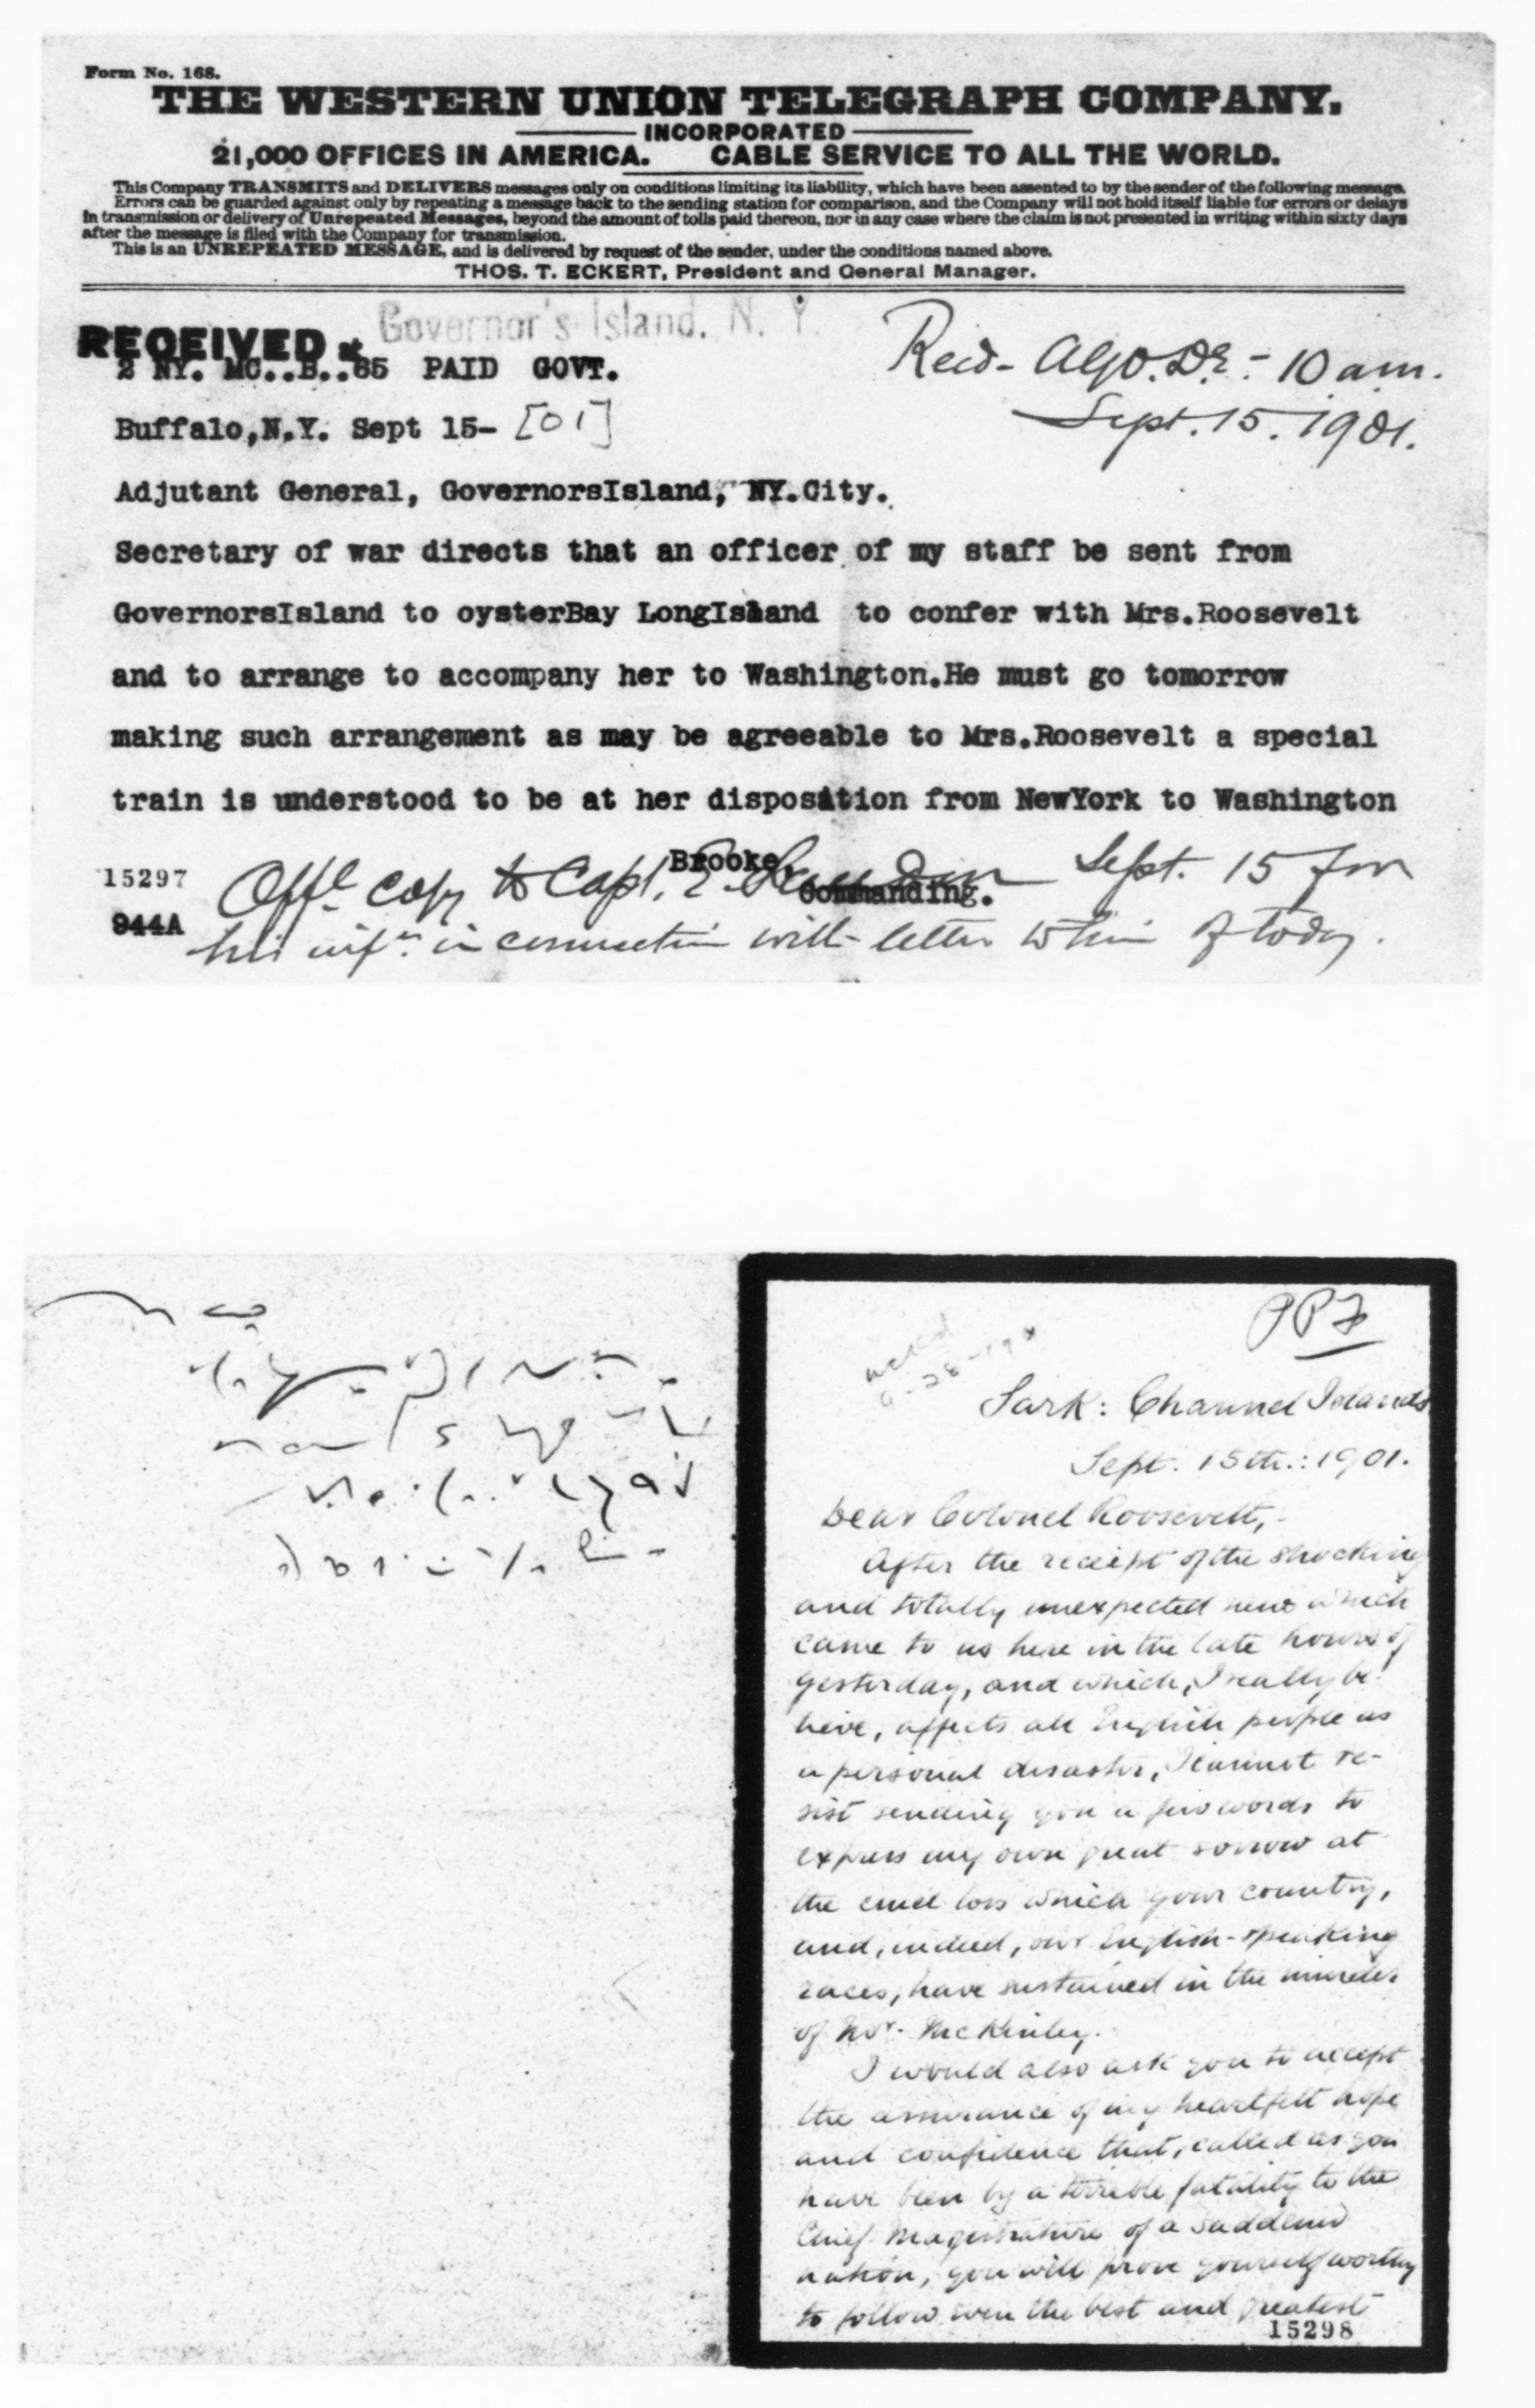 Form No. 168.
THE WESTERN UNION TELEGRAPH COMPANY.
INCORPORATED
21,000 OFFICES IN AMERICA. CABLE SERVICE TO ALL THE WORLD.
This Company TRANSMITS and DELIVERS messages only on conditions limiting its liability, which have been assented to by the sender of the following message.
Errors can be guarded against only by repeating a message back to the sending station for comparison, and the Company will not hold itself liable for errors or delays
in transmission or delivery of Unrepeated Messages, beyond the amount of tolls paid thereon, nor in any case where the claim is not presented in writing within sixty days
after the message is filed with the Company for transmission.
This is an UNREPEATED MESSAGE, and is delivered by request of the sender, under the conditions named above.
THOS. T. ECKERT, President and General Manager.
RECEIVED at Governor's Island, N. Y.
2 NY. MC..B..65 PAID GOVT.
Recd- AGO. DE. - 10 am.
Sept. 15. 1901.
Buffalo,N.Y. Sept 15- [01]
Adjutant General, GovernorsIsland, NY.City.
Secretary of war directs that an officer of my staff be sent from
GovernorsIsland to oysterBay LongIsland to confer with Mrs.Roosevelt
and to arrange to accompany her to Washington.He must go tomorrow
making such arrangement as may be agreeable to Mrs.Roosevelt a special
train is understood to be at her disposition from NewYork to Washington
Brooke,
Commanding.
15297
944A
Offl copy to Capt. Sept. 15 for
his infn. in connection with letter to him of today.
PPF
9-28-19
Sark: Channel Islands
Sept. 15th.: 1901.
Dear Colonel Roosevelt,-
After the receipt of the shocking
and totally unexpected news which
came to us here in the late hours of
yesterday, and which, I really be-
lieve, affects all English people as
a personal disaster, I cannot re-
sist sending you a few words to
express my own great sorrow at
the cruel loss which your country,
and, indeed, our English-speaking
races, have sustained in the murder
of Mr. McKinley.
I would also ask you to accept
the assurance of my heartfelt hope
and confidence that, called as you
have been by a terrible fatality to the
Chief Magistrature of a saddened
nation, you will prove yourself worthy
to follow even the best and greatest
15298